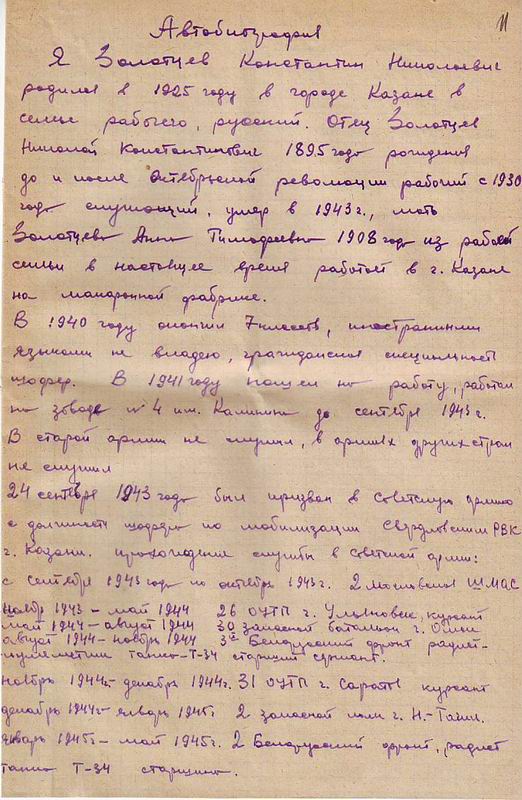 11
Автобиография
Я Золотцев Константин Николаевич
родился в 1925 году в городе Казане в
семье рабочего, русский. Отец Золотцев
Николай Константинович 1895 года рождения
до и после Октябрьской революции рабочий с 1930
года служащий, умер в 1943 г., мать
Золотцева Анна Тимофеевна 1908 года из рабочей
семьи в настоящее время работает в г. Казане
на макаронной фабрике.
В 1940 году окончил 7 классов, иностранными
языками не владею, гражданская специальность
шофер. В 1941 году пошел на работу, работал
на заводе №4 им. Калинина до сентября 1943 г.
В старой армии не служил, в армиях других стран
не служил
24 сентября 1943 года был призван в Советскую армию
с должности шофера по мобилизации Свердловским РВК
г. Казани. прохождение службы в Советской армии:
с сентября 1943 года по октябрь 1943 г. 2 московская ШМАС
ноябрь 1943 – май 1944 26 ОУТП г. Ульяновск, курсант
май 1944 – август 1944 30 запасной батальон г.
август 1944 – ноябрь 1944 3й Белорусский фронт радист-
пулеметчик танка Т-34 старший сержант.
ноябрь 1944 г. – декабрь 1944 г. 31 ОУТП г. Саратов курсант
декабрь 1944 г. – январь 1945 г. 2 запасной полк г. Н.-Тагил.
январь 1945 г. – май 1945 г. 2 Белорусский фронт, радист
танка Т-34 старшина.